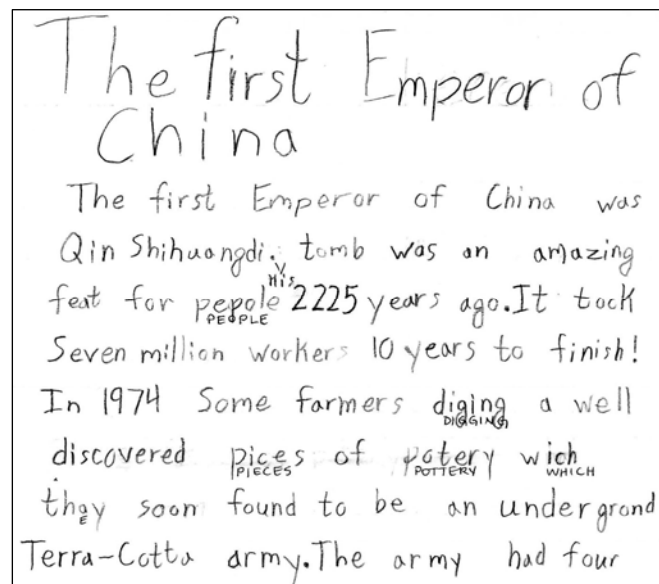 The first Emperor of
China
The first Emperor of China was
Qin Shihuangdi. tomb was an amazing
His
feat for pepole 2225 years ago. It tock
PEOPLE
Seven million workers 10 years to finish!
In 1974 Some farmers diging a well
DIGGING
discovered pices of potery wich
PIECES POTTERY WHICH
they soon found to be an undergrond
E
Terra-Cotta army. The army had four